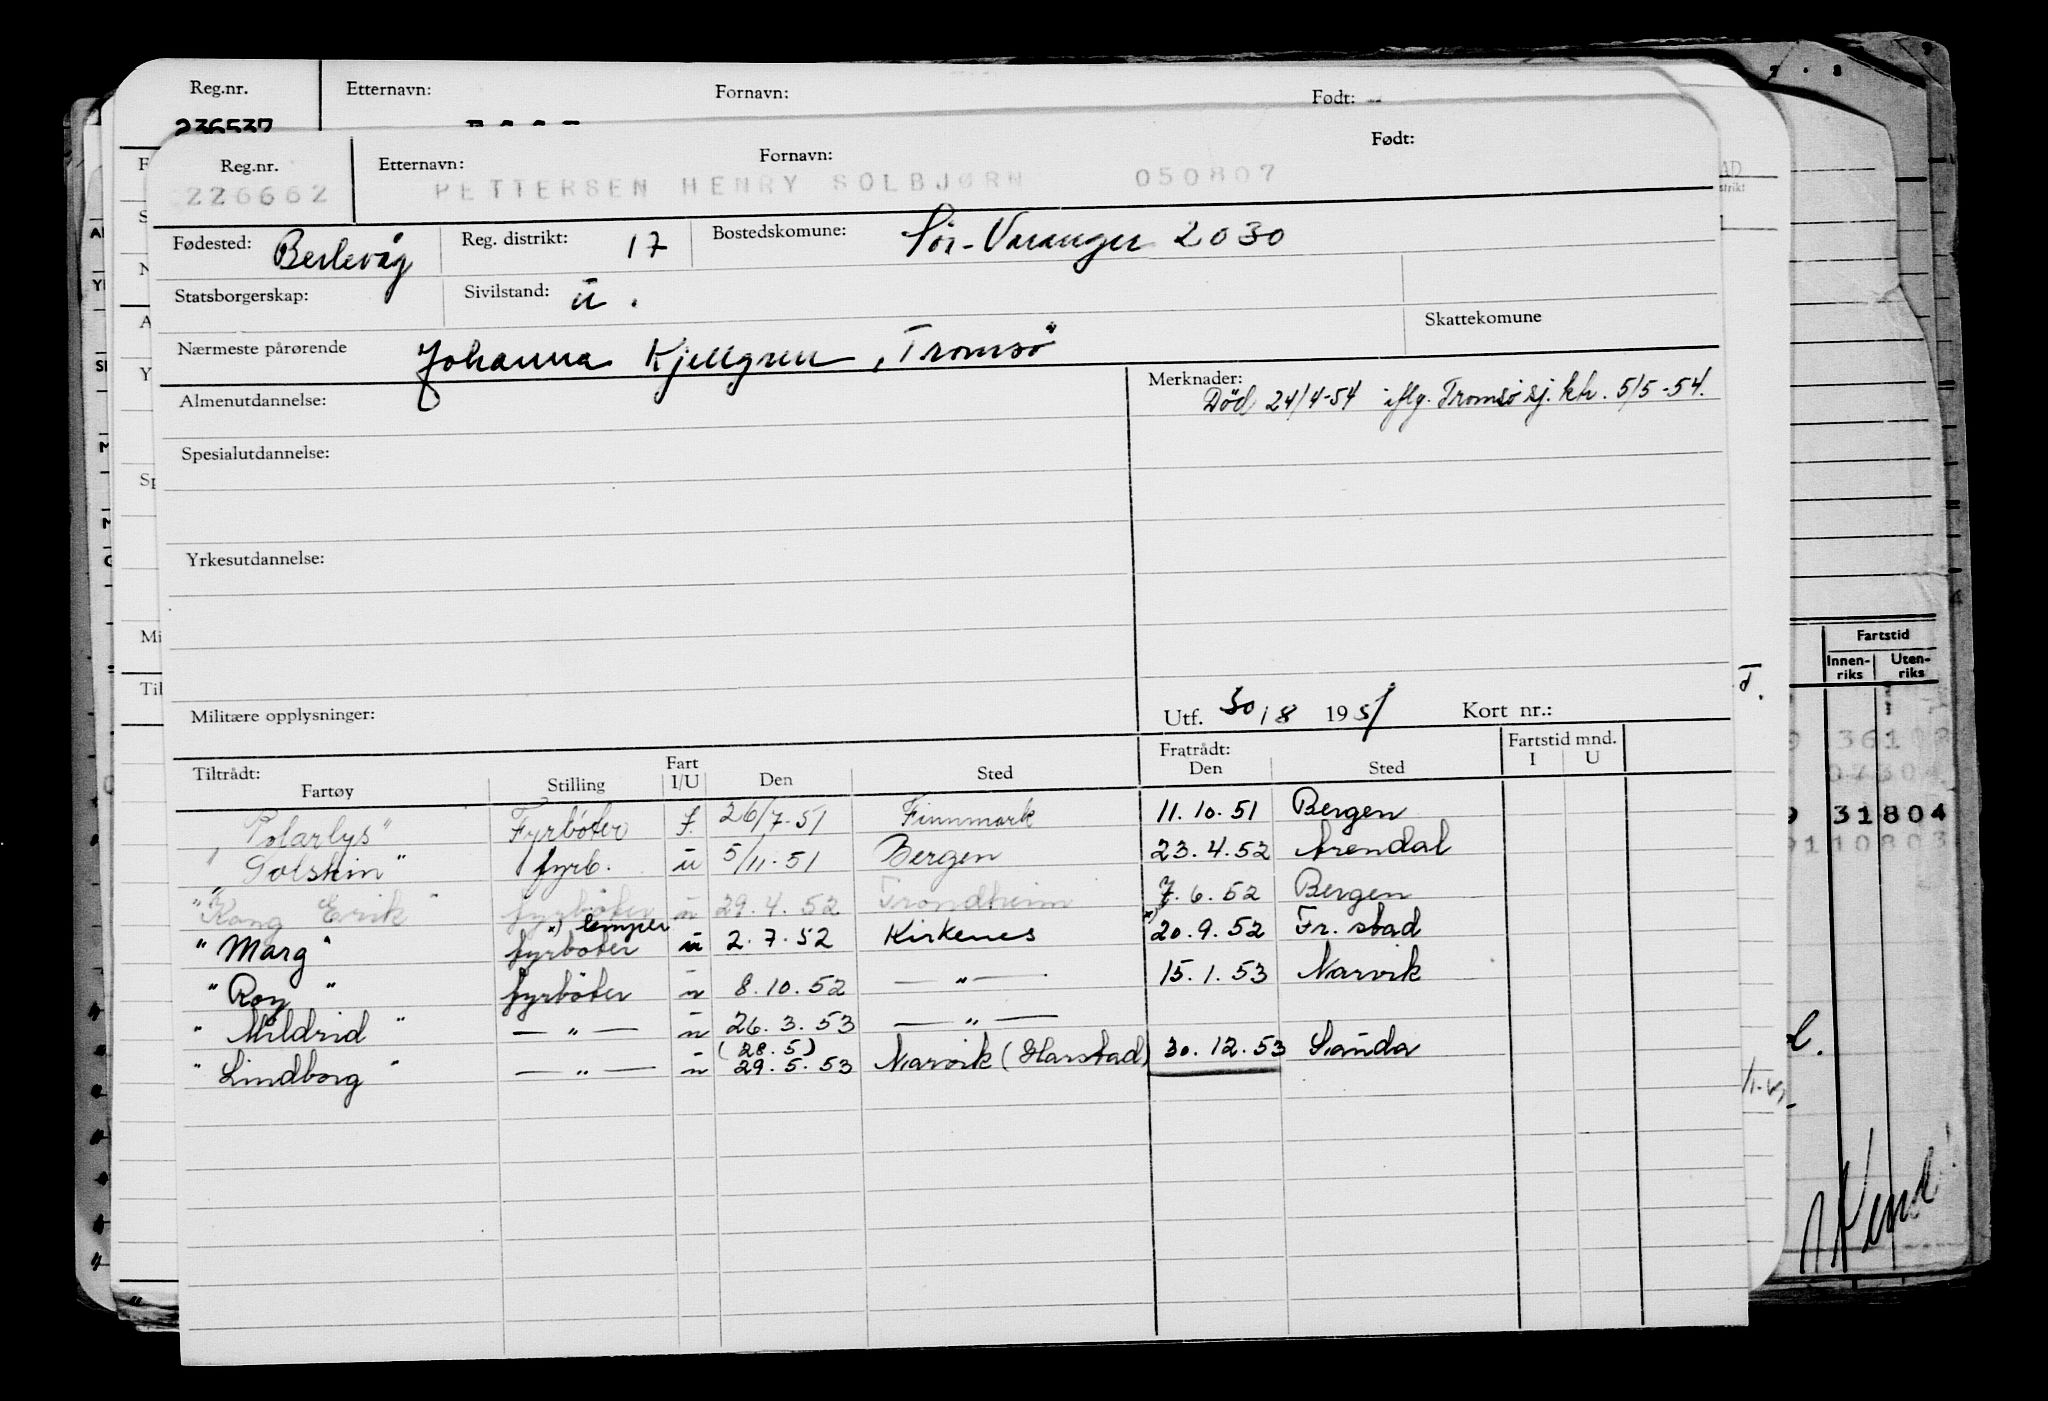 Reg.nr. Etternavn: Fornavn: Født:
236537
Reg.nr. Etternavn: Fornavn: Født:
226662 PETTERSEN HENRY SOLBJØRN 050807
Fødested: Berlevåg Reg. distrikt: 17 Bostedskomune: Sør-Varanger 2030
Statsborgerskap: Sivilstand: u.
Skattekomune
Nærmeste pårørende Johanna Kjellgren, Tromsö
Almenutdannelse: Merknader: Död 24/4-54 iflg. Tromsö sj. kh. 5/5-54.
Spesialutdannelse:
Yrkesutdannelse:
Militære opplysninger: Utf. 30/8 1951 Kort nr.:
Tiltrådt: Fratrådt: Fartstid mnd.
Fartøy Stilling Fart I/U Den Sted Den Sted I U
"Polarlys" Fyrböter f. 26/7-51 Finnmark 11.10.51 Bergen
"Solskin" fyrb. u 5/11-51 Bergen 23.4.52 Arendal
"Kong Erik" fyrböter u 29.4.52 Trondheim 7.6.52 Bergen
x) lemper
"Marg" fyrböter u 2.7.52 Kirkenes x) 20.9.52 Fr. stad
"Roy" fyrböter u 8.10.52 — " — 15.1.53 Narvik
"Mildrid" — " — u 26.3.53 — " —
(28.5)
"Lindborg" — " — u 29.5.53 Narvik (Harstad) 30.12.53 Sauda
Fartstid
Innen-riks Uten-riks
31804